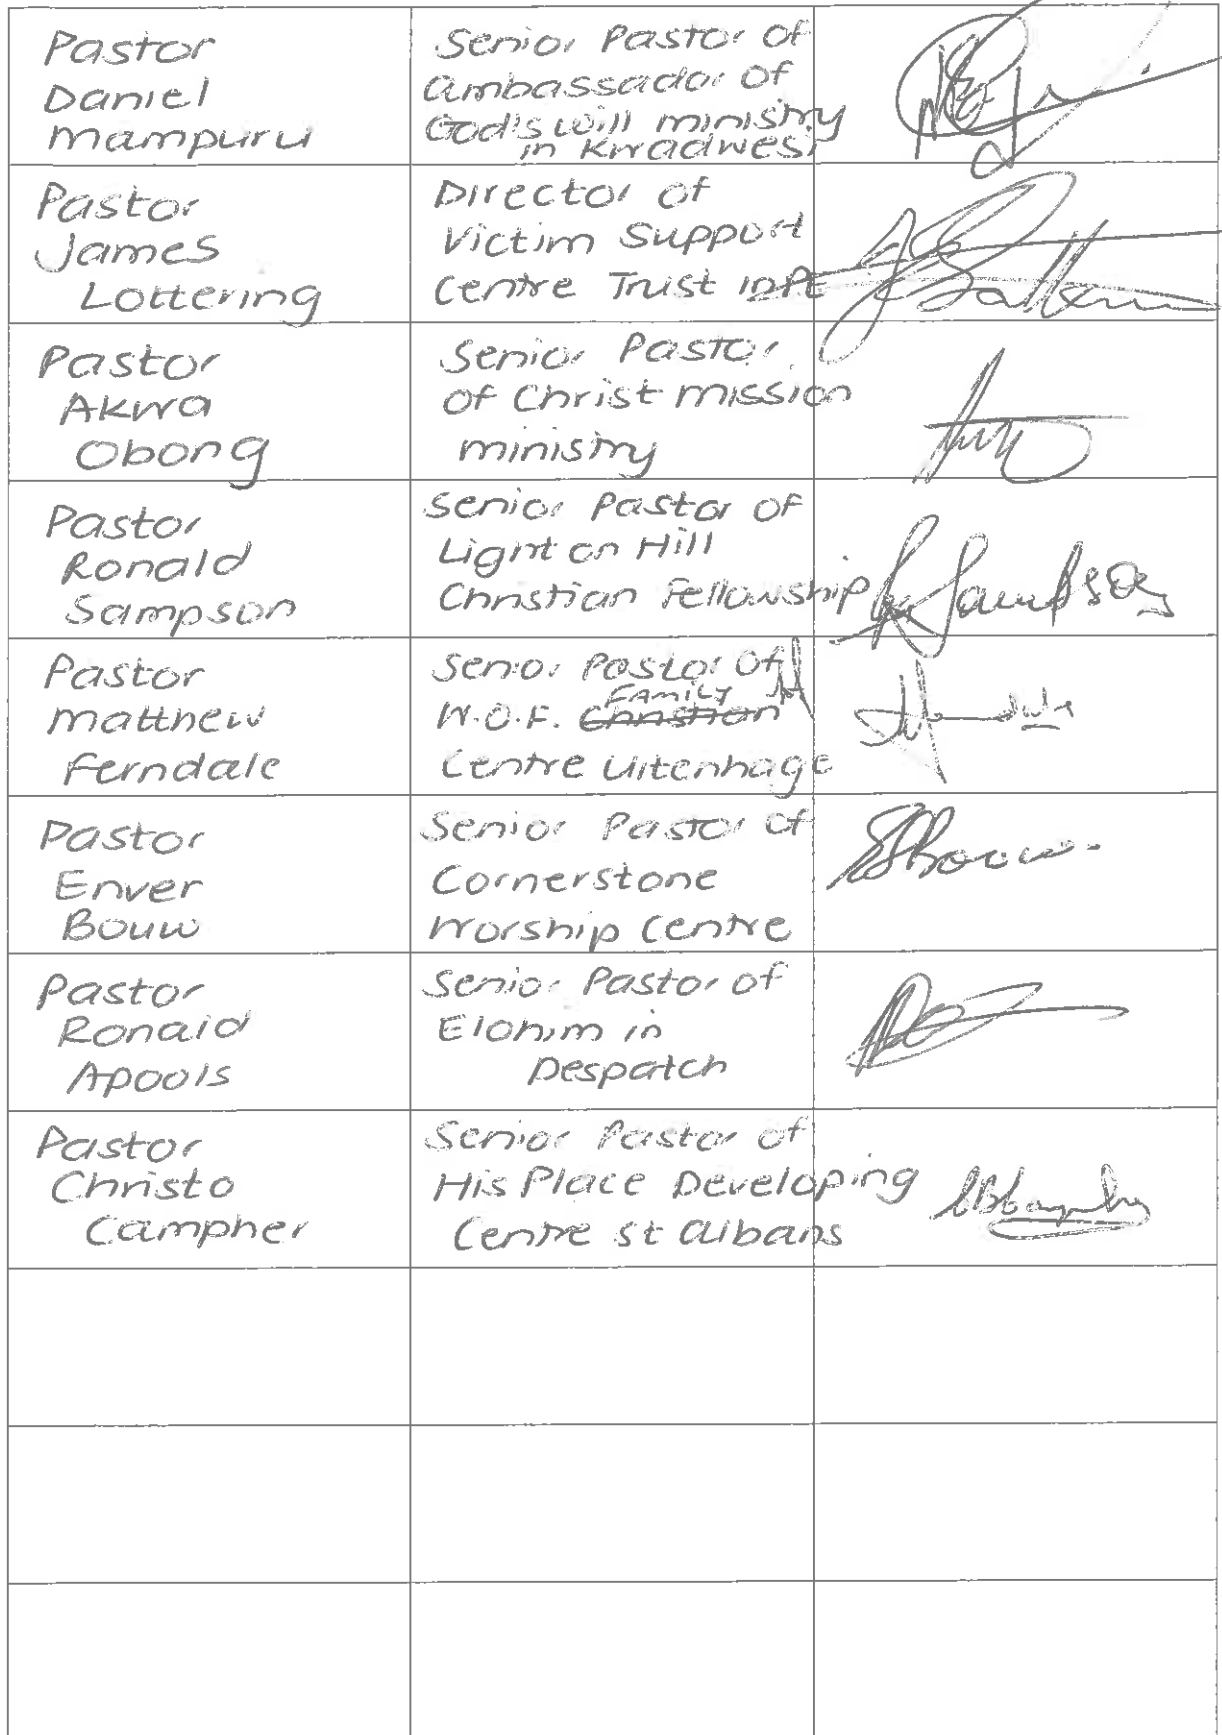 Pastor
Daniel
Mampuru
Senior Pastor of
Ambassador of
God's will ministry
in Kwadwesi
Pastor
James
Lottering
Director of
Victim Support
Centre Trust in PE
Pastor
Akwa
Obong
Senior Pastor
of Christ mission
ministry
Pastor
Ronald
Sampson
Senior Pastor of
Light on Hill
Christian Fellowship
R Sampson
Pastor
Matthew
Ferndale
Senior Pastor of
FAMILY
W.O.F. Christian
Centre Uitenhage
Pastor
Enver
Bouw
Senior Pastor of
Cornerstone
Worship Centre
Pastor
Ronald
Apools
Senior Pastor of
Elohim in
Despatch
Pastor
Christo
Campher
Senior Pastor of
His Place Developing
Centre St Albans